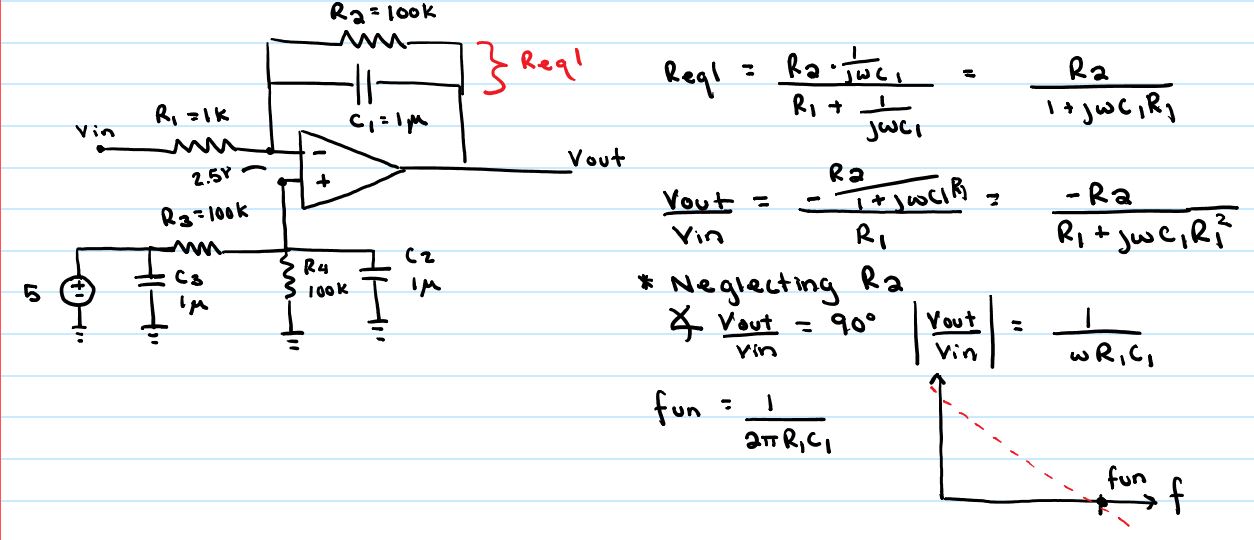 R2 = 100K
} Req1
R1 = 1K
C1 = 1μ
Vin
2.5V
-
+
Vout
R3 = 100K
5
C3
1μ
R4
100K
C2
1μ
Req1 = (R2 · 1/jωC1) / (R1 + 1/jωC1) = R2 / (1 + jωC1R1)
Vout/Vin = (-R2 / (1 + jωC1R1)) / R1 = -R2 / (R1 + jωC1R1²)
* Neglecting R2
∡ Vout/Vin = 90° |Vout/Vin| = 1 / (ωR1C1)
fun = 1 / (2πR1C1)
fun
f